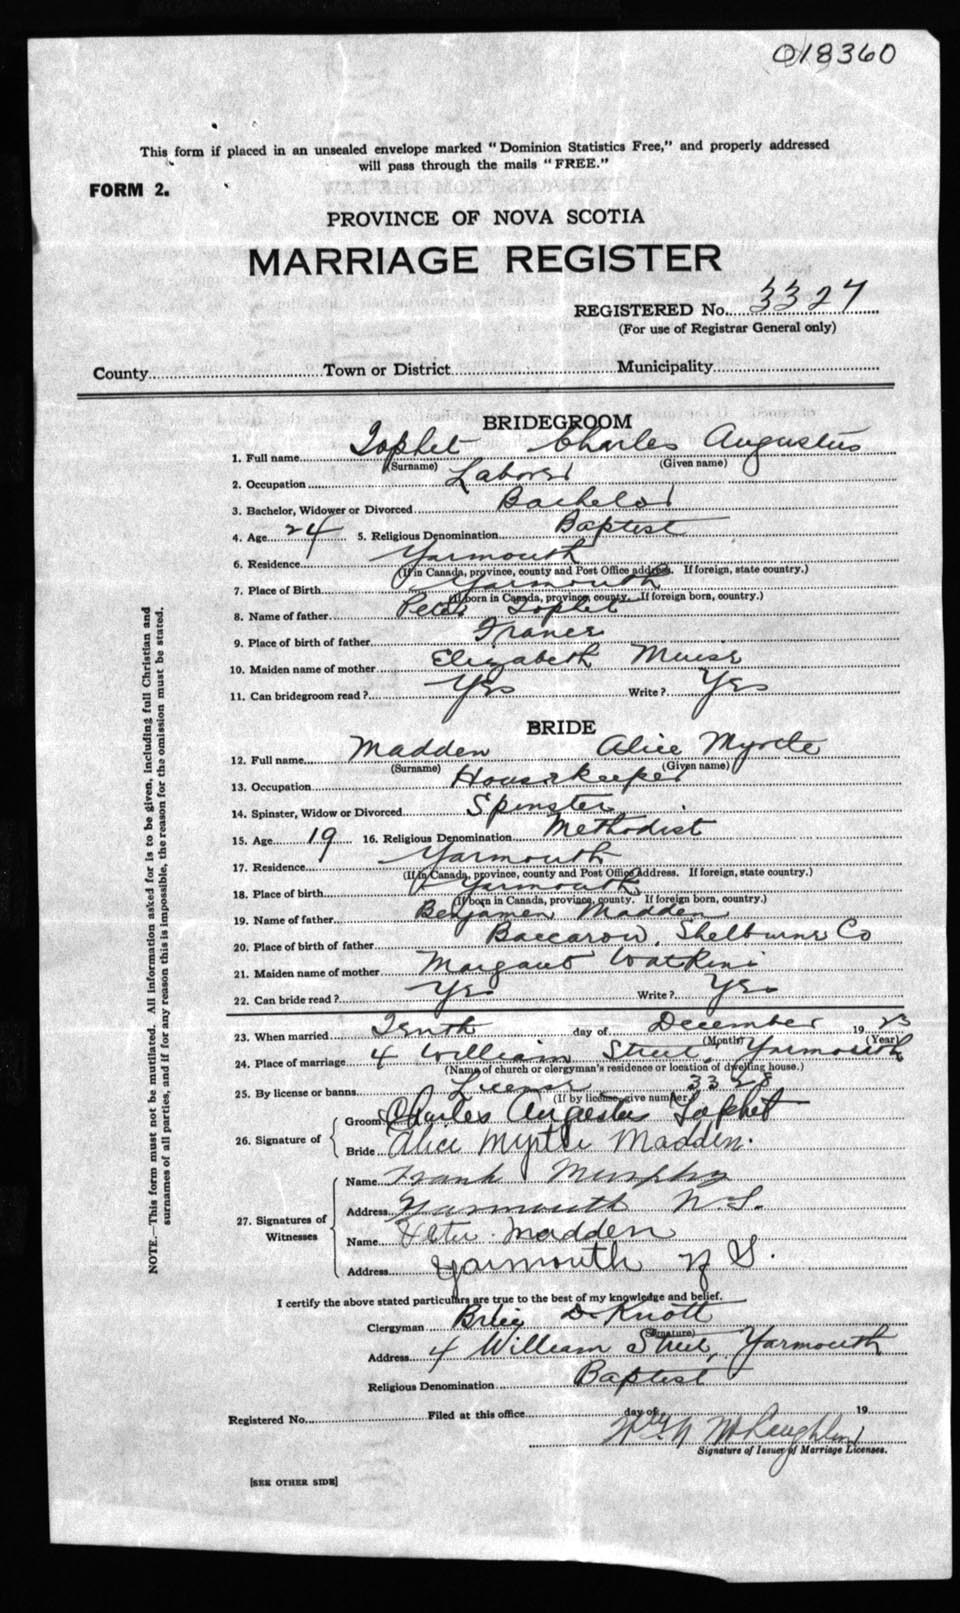 018360
This form if placed in an unsealed envelope marked "Dominion Statistics Free," and properly addressed
will pass through the mails "FREE."
FORM 2.
PROVINCE OF NOVA SCOTIA
MARRIAGE REGISTER
REGISTERED No. 3327
(For use of Registrar General only)
County Town or District Municipality
BRIDEGROOM
1. Full name Tophet Charles Augustus
(Surname) (Given name)
2. Occupation Laborer
3. Bachelor, Widower or Divorced Bachelor
4. Age 24 5. Religious Denomination Baptist
6. Residence Yarmouth
(If in Canada, province, county and Post Office address. If foreign, state country.)
7. Place of Birth Yarmouth
(If born in Canada, province, county. If foreign born, country.)
8. Name of father Peter Tophet
9. Place of birth of father France
10. Maiden name of mother Elizabeth Muise
11. Can bridegroom read? Yes Write? Yes
BRIDE
12. Full name Madden Alice Myrtle
(Surname) (Given name)
13. Occupation Housekeeper
14. Spinster, Widow or Divorced Spinster
15. Age 19 16. Religious Denomination Methodist
17. Residence Yarmouth
(If in Canada, province, county and Post Office Address. If foreign, state country.)
18. Place of birth Yarmouth
(If born in Canada, province, county. If foreign born, country.)
19. Name of father Benjamen Madden
20. Place of birth of father Baccarow, Shelburne Co
21. Maiden name of mother Margaret Watkins
22. Can bride read? Yes Write? Yes
23. When married Tenth day of December 1923
(Month) (Year)
24. Place of marriage 4 William Street, Yarmouth
(Name of church or clergyman's residence or location of dwelling house.)
25. By license or banns License 3328
(If by license, give number)
26. Signature of
Groom Charles Augustus Tophet
Bride Alice Myrtle Madden.
27. Signatures of Witnesses
Name Frank Murphy
Address Yarmouth N.S.
Name Madden
Address Yarmouth N S.
I certify the above stated particulars are true to the best of my knowledge and belief.
Clergyman D Knott
(Signature)
Address 4 William Street, Yarmouth
Religious Denomination Baptist
Registered No. Filed at this office day of 19
McLaughlin
Signature of Issuer of Marriage Licenses.
[SEE OTHER SIDE]
NOTE.—This form must not be mutilated. All information asked for is to be given, including full Christian and
surnames of all parties, and if for any reason this is impossible, the reason for the omission must be stated.